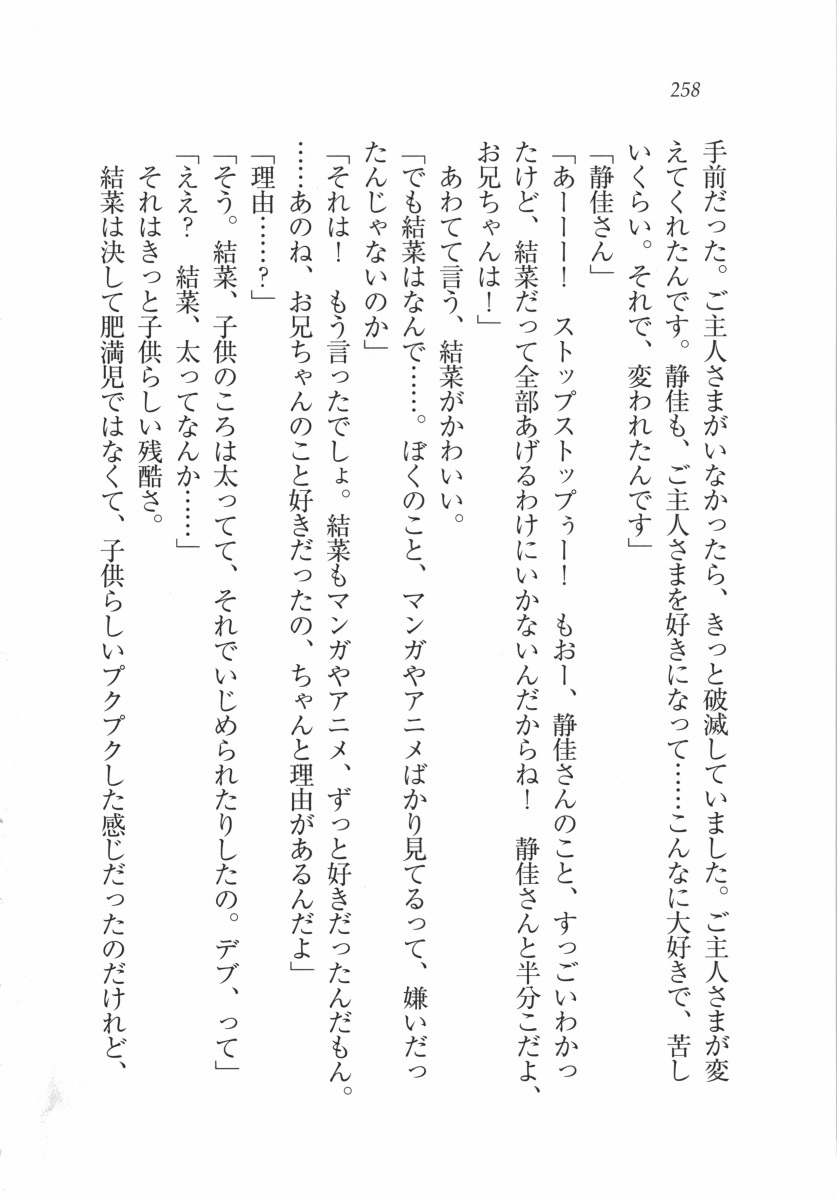 258
手前だった。ご主人さまがいなかったら、きっと破滅していました。ご主人さまが変
えてくれたんです。静佳も、ご主人さまを好きになって……こんなに大好きで、苦し
いくらい。それで、変われたんです」
「静佳さん」
「あーーー！　ストップストップぅー！　もおー、静佳さんのこと、すっごいわかっ
たけど、結菜だって全部あげるわけにいかないんだからね！　静佳さんと半分こだよ、
お兄ちゃんは！」
　あわてて言う、結菜がかわいい。
「でも結菜はなんで……。ぼくのこと、マンガやアニメばかり見てるって、嫌いだっ
たんじゃないのか」
「それは！　もう言ったでしょ。結菜もマンガやアニメ、ずっと好きだったんだもん。
……あのね、お兄ちゃんのこと好きだったの、ちゃんと理由があるんだよ」
「理由……？」
「そう。結菜、子供のころは太ってて、それでいじめられたりしたの。デブ、って」
「ええ？　結菜、太ってなんか……」
　それはきっと子供らしい残酷さ。
　結菜は決して肥満児ではなくて、子供らしいプクプクした感じだったのだけれど、